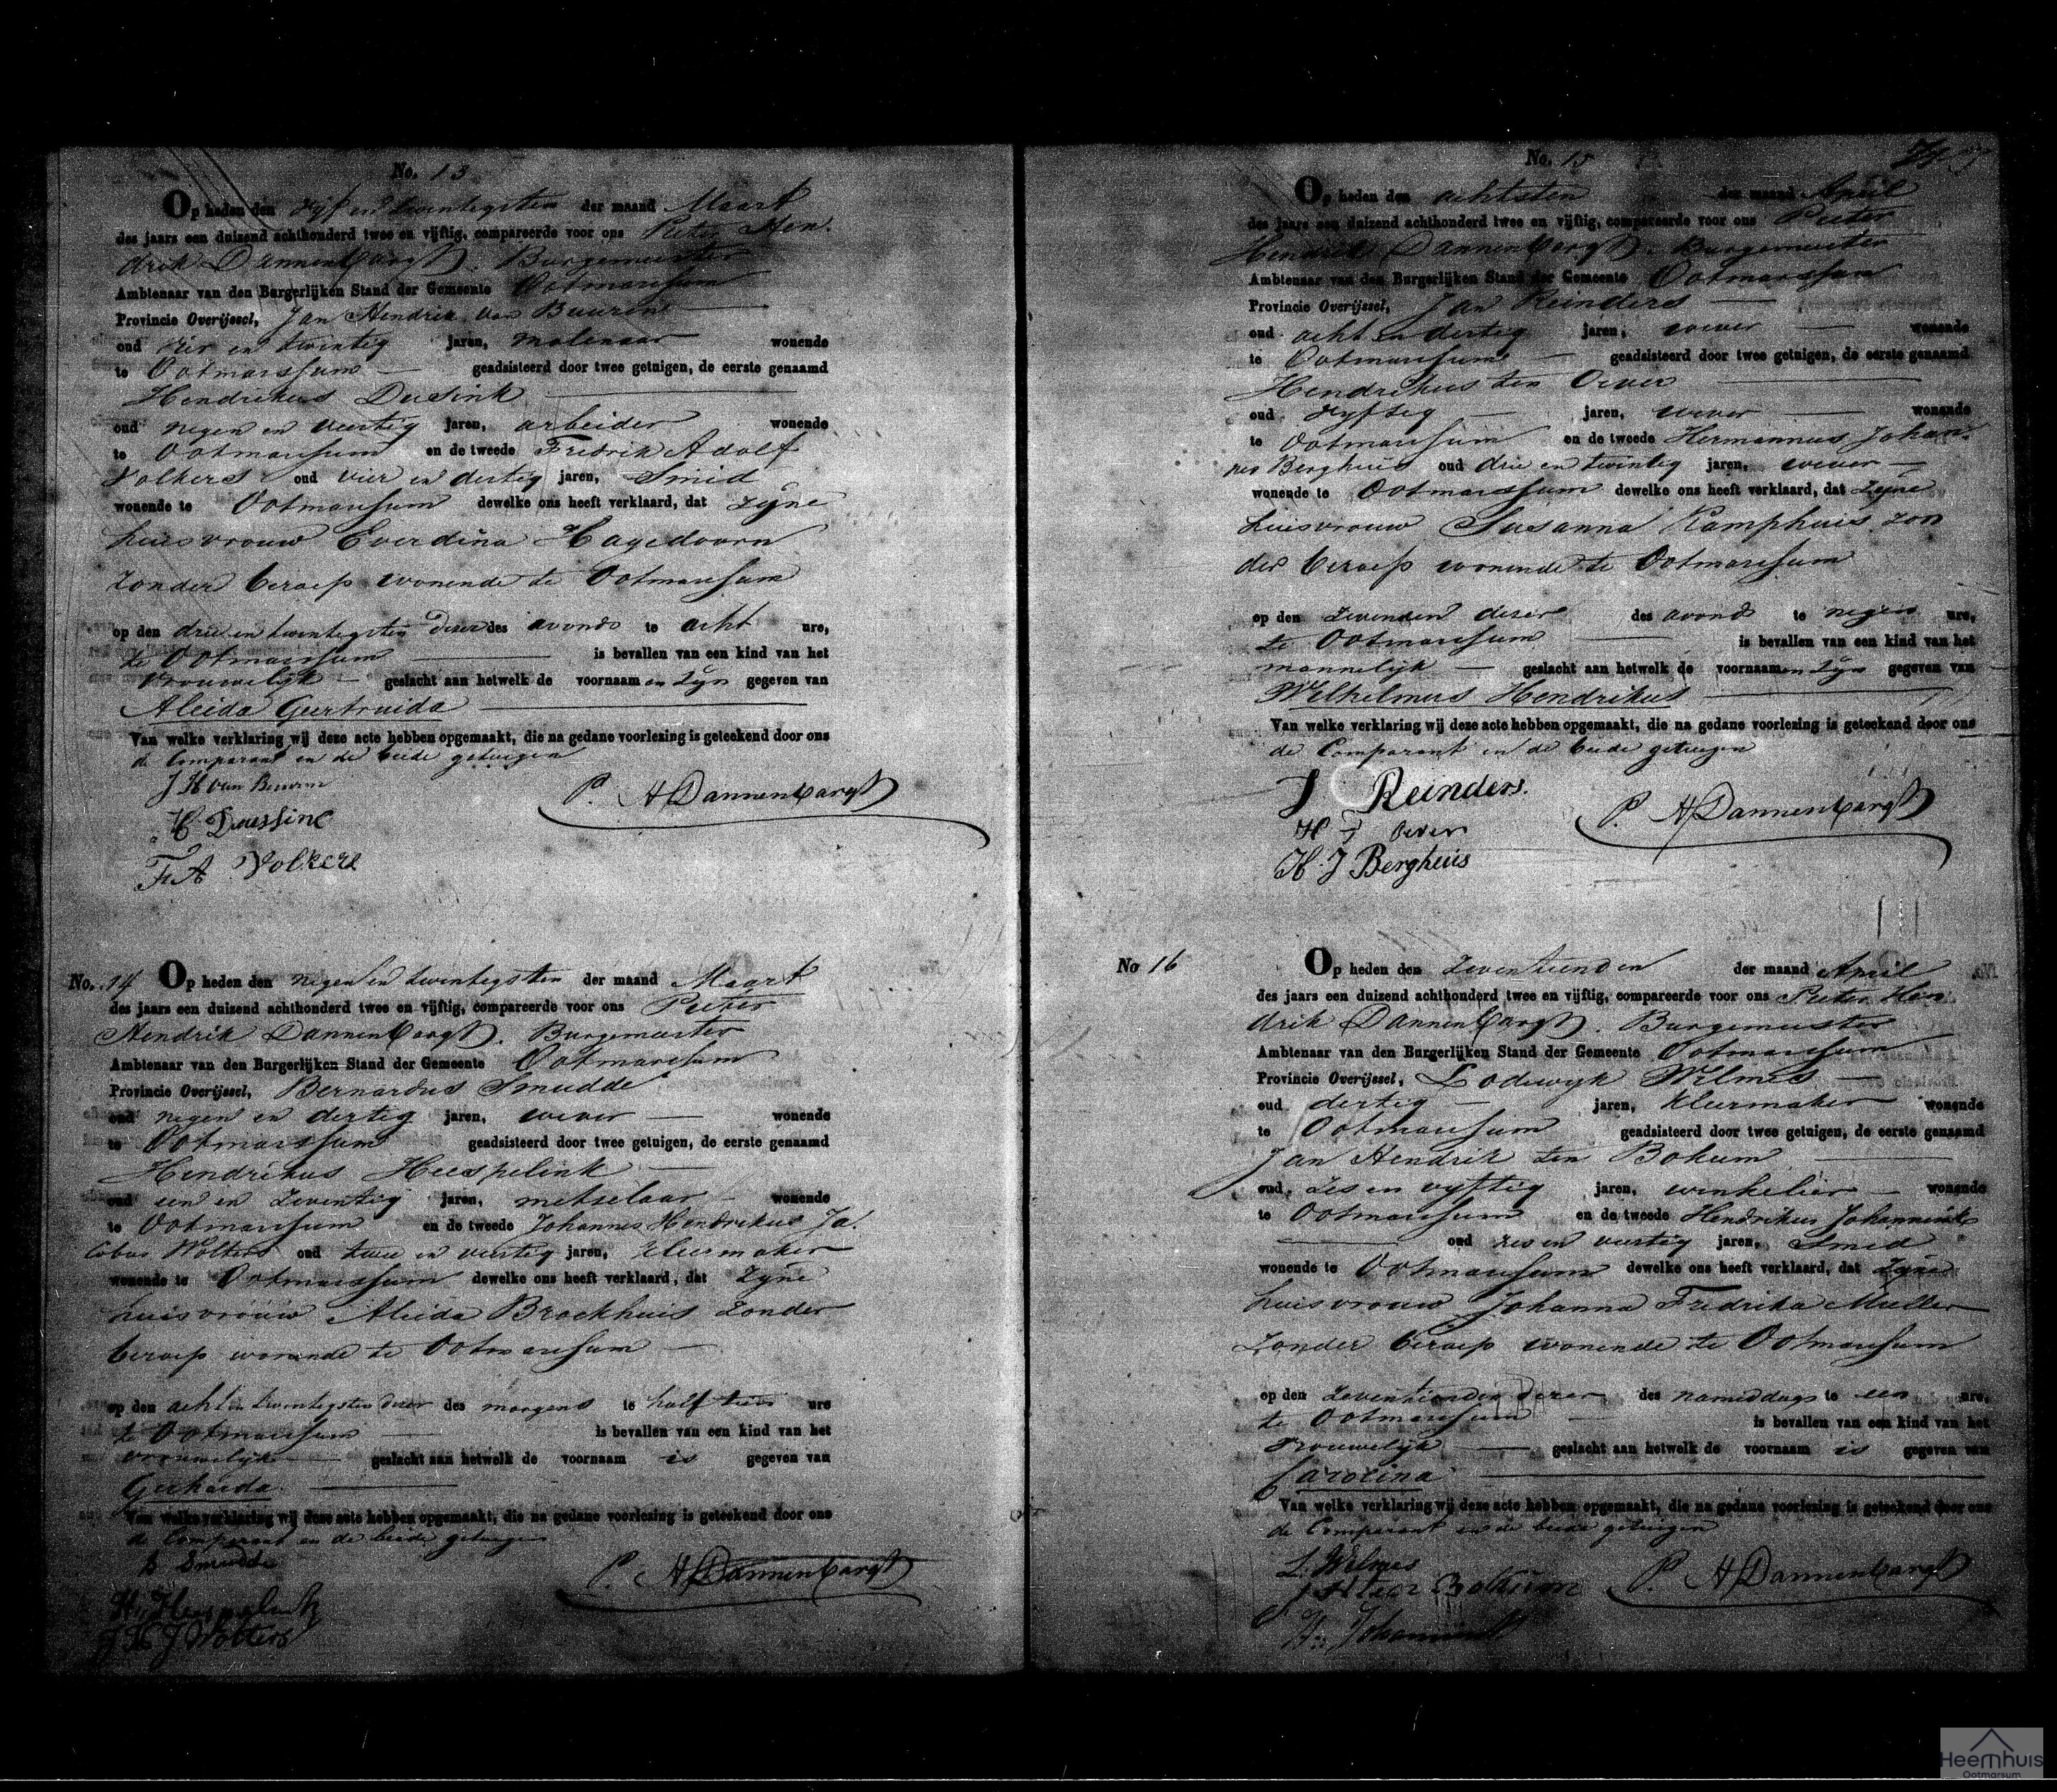 No. 13
Op heden den vijf en twintigsten der maand Maart
des jaars een duizend achthonderd twee en vijftig, compareerde voor ons Pieter Hen-
drik Dannenbargh. Burgemeester
Ambtenaar van den Burgerlijken Stand der Gemeente Ootmarssum
Provincie Overijssel, Jan Hendrik van Buuren
oud vier en twintig jaren, molenaar wonende
te Ootmarssum geadsisteerd door twee getuigen, de eerste genaamd
Hendrikus Dusink
oud negen en veertig jaren, arbeider wonende
te Ootmarssum en de tweede Fredrik Adolf
Volkers oud vier en dertig jaren, Smid
wonende te Ootmarssum dewelke ons heeft verklaard, dat zyne
huisvrouw Everdina Hagedoorn
zonder beroep wonende te Ootmarssum
op den drie en twintigsten dezer des avonds te acht ure,
te Ootmarssum is bevallen van een kind van het
vrouwelijk geslacht aan hetwelk de voornaamen zyn gegeven van
Aleida Geertruida
Van welke verklaring wij deze acte hebben opgemaakt, die na gedane voorlezing is geteekend door ons
de Comparant en de beide getuigen
J H van Beuren
P. H Dannenbargh
H Deussink
F. A Volkers
No. 14 Op heden den negen en twintigsten der maand Maart
des jaars een duizend achthonderd twee en vijftig, compareerde voor ons Pieter
Hendrik Dannenbargh. Burgemeester
Ambtenaar van den Burgerlijken Stand der Gemeente Ootmarssum
Provincie Overijssel, Bernardus Smudde
oud negen en dertig jaren, wever wonende
te Ootmarssum geadsisteerd door twee getuigen, de eerste genaamd
Hendrikus Heespelink
oud een en zeventig jaren, metselaar wonende
te Ootmarssum en de tweede Johannes Hendrikus Ja-
cobus Wolters oud twee en veertig jaren, kleermaker
wonende te Ootmarssum dewelke ons heeft verklaard, dat zyne
huisvrouw Aleida Brockhuis zonder
beroep wonende te Ootmarssum
op den acht en twintigsten dezer des morgens te half tien ure
te Ootmarssum is bevallen van een kind van het
vrouwelijk geslacht aan hetwelk de voornaam is gegeven van
Gerharda
Van welke verklaring wij deze acte hebben opgemaakt, die na gedane voorlezing is geteekend door ons
de Comparant en de beide getuigen
B Smudde
P. H Dannenbargh
H. Heespelink
J H J Wolters
No. 15
Op heden den achtsten der maand April
des jaars een duizend achthonderd twee en vijftig, compareerde voor ons Pieter
Hendrik Dannenbargh. Burgemeester
Ambtenaar van den Burgerlijken Stand der Gemeente Ootmarssum
Provincie Overijssel, Jan Reinders
oud acht en dertig jaren, wever wonende
te Ootmarssum geadsisteerd door twee getuigen, de eerste genaamd
Hendrikus ten Oever
oud vyftig jaren, wever wonende
te Ootmarssum en de tweede Hermannus Johan-
nes Berghuis oud drie en twintig jaren, wever
wonende te Ootmarssum dewelke ons heeft verklaard, dat zyne
huisvrouw Susanna Kamphuis zon
der beroep wonende te Ootmarssum
op den zevenden dezer des avonds te negen ure,
te Ootmarssum is bevallen van een kind van het
mannelijk geslacht aan hetwelk de voornaamen zyn gegeven van
Wilhelmus Hendrikus
Van welke verklaring wij deze acte hebben opgemaakt, die na gedane voorlezing is geteekend door ons
de Comparant en de beide getuigen
J Reinders.
P. H Dannenbargh
H T Oever
H. J Berghuis
No 16 Op heden den zeventienden der maand April
des jaars een duizend achthonderd twee en vijftig, compareerde voor ons Pieter Hen-
drik Dannenbargh. Burgemeester
Ambtenaar van den Burgerlijken Stand der Gemeente Ootmarssum
Provincie Overijssel, Lodewyk Wilmes
oud dertig jaren, kleermaker wonende
te Ootmarssum geadsisteerd door twee getuigen, de eerste genaamd
Jan Hendrik ten Bokum
oud zes en vyftig jaren, winkelier wonende
te Ootmarssum en de tweede Hendrikus Johannink
oud zes en veertig jaren, Smid
wonende te Ootmarssum dewelke ons heeft verklaard, dat zyne
huisvrouw Johanna Fredrika Muller
zonder beroep wonende te Ootmarssum
op den zeventienden dezer des nameddags te een ure,
te Ootmarssum is bevallen van een kind van het
vrouwelijk geslacht aan hetwelk de voornaam is gegeven van
Carolina
Van welke verklaring wij deze acte hebben opgemaakt, die na gedane voorlezing is geteekend door ons
de Comparant en de beide getuigen
L. Wilmes
P. H Dannenbargh
Bokkum
H: Johannink
Heemhuis
Ootmarsum